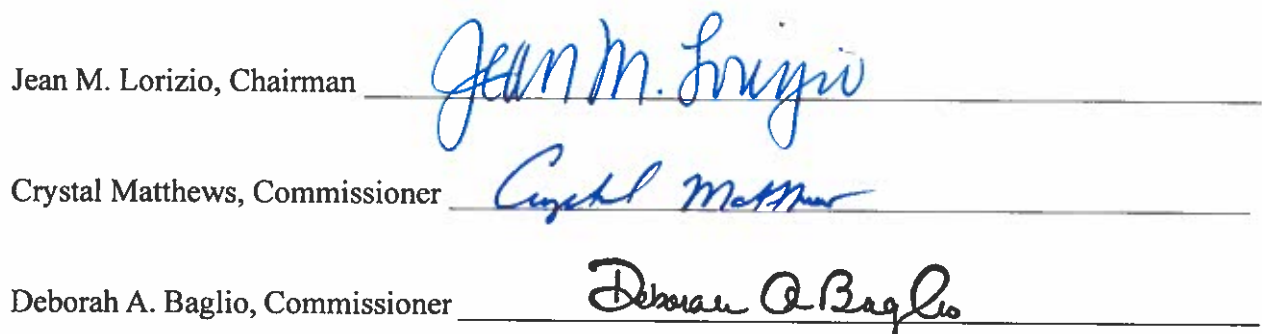 Jean M. Lorizio, Chairman Jean M. Lorizio
Crystal Matthews, Commissioner Crystal Matthews
Deborah A. Baglio, Commissioner Deborah A Baglio